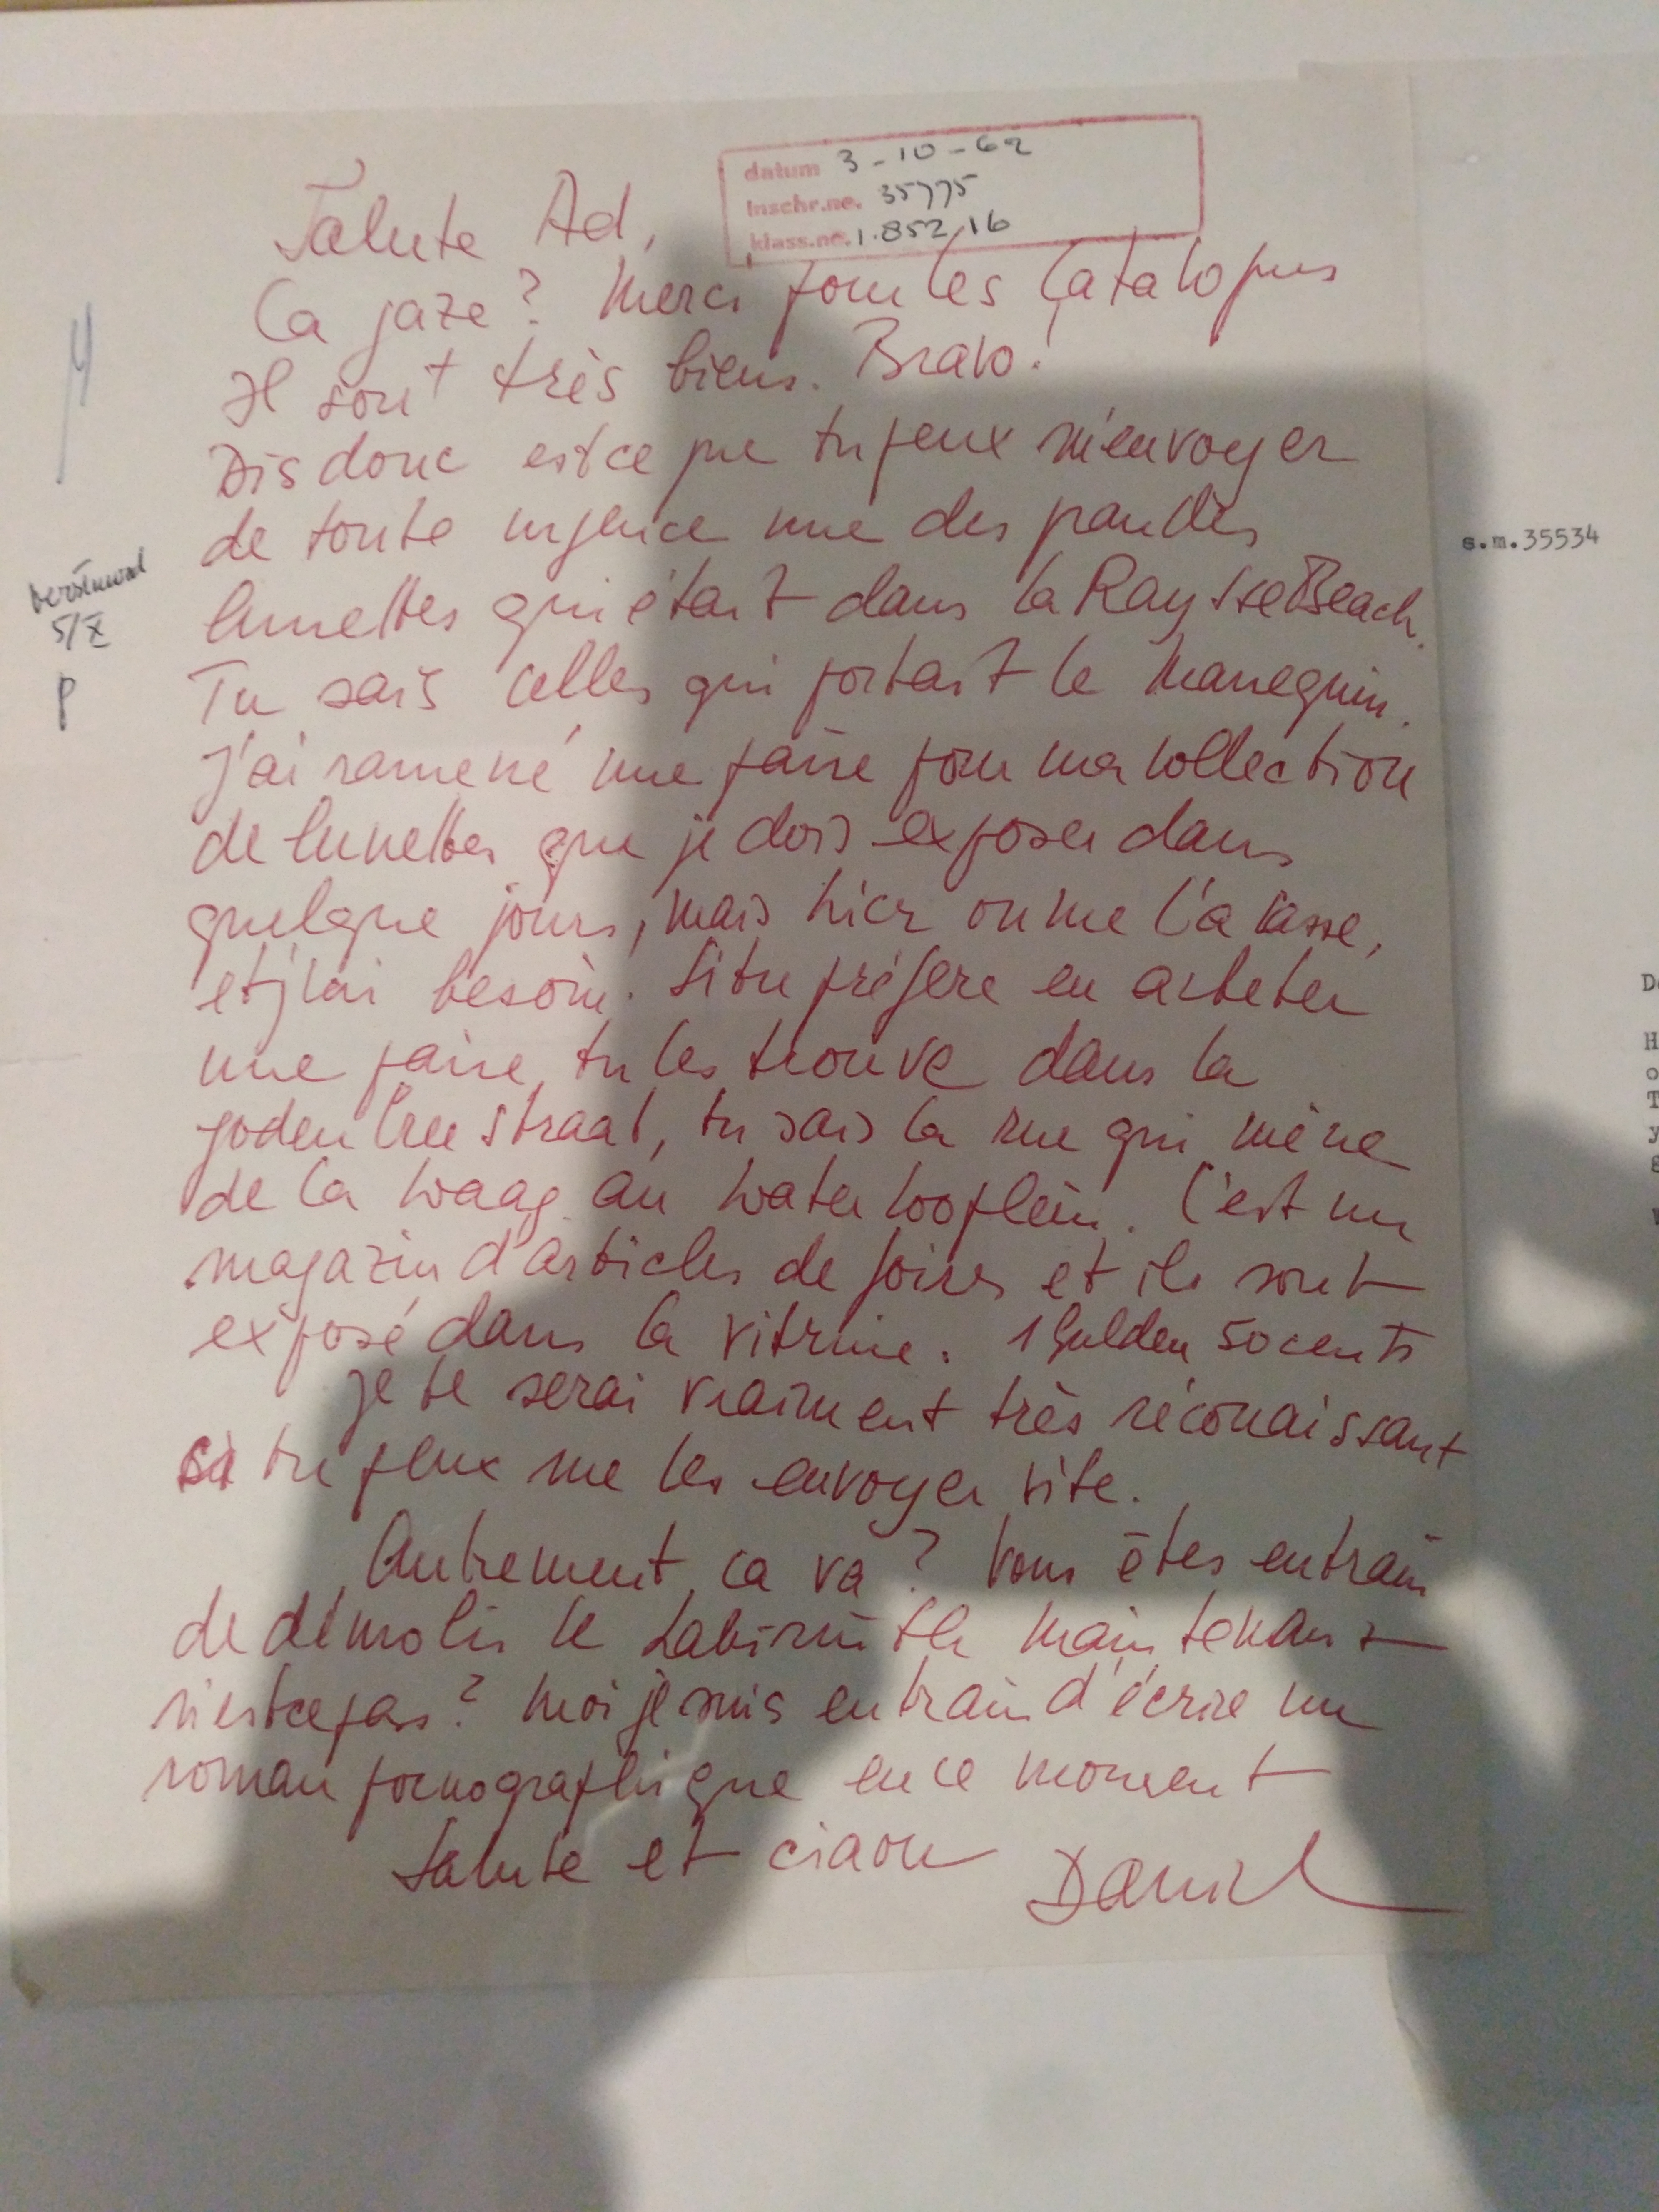 datum 3-10-62
Inschr.no. 35775
klass.no. 1.852,16
Salute Ad,
Ca gaze? Merci pour les Catalogues
Il sont très biens. Bravo!
Dis donc est ce que tu peux m'envoyer
de toute urgence une des grandes
lunettes qui était dans la Raysse Beach.
Tu sais celles qui portait le manequin.
J'ai ramené une paire pour ma collection
de lunettes que je dois exposer dans
quelque jours, mais hier on me l'a cassé,
et j'ai besoin. Si tu préfère en acheter
une paire, tu les trouve dans la
Joden bree straat, tu sais la rue qui mène
de la Waag au Waterlooplein. C'est un
magazin d'articles de foires et ils sont
exposé dans la vitrine. 1 Gulden 50 cents
je te serai vraiment très réconaissant
si tu peux me les envoyer vite.
Autrement, ca va? Vous êtes entrain
de démolir le Labirinth maintenant
n'estcepas? Moi je suis entrain d'écrire un
roman pornographique en ce moment
Salute et ciaou Daniel
5/X
P
s.m.35534